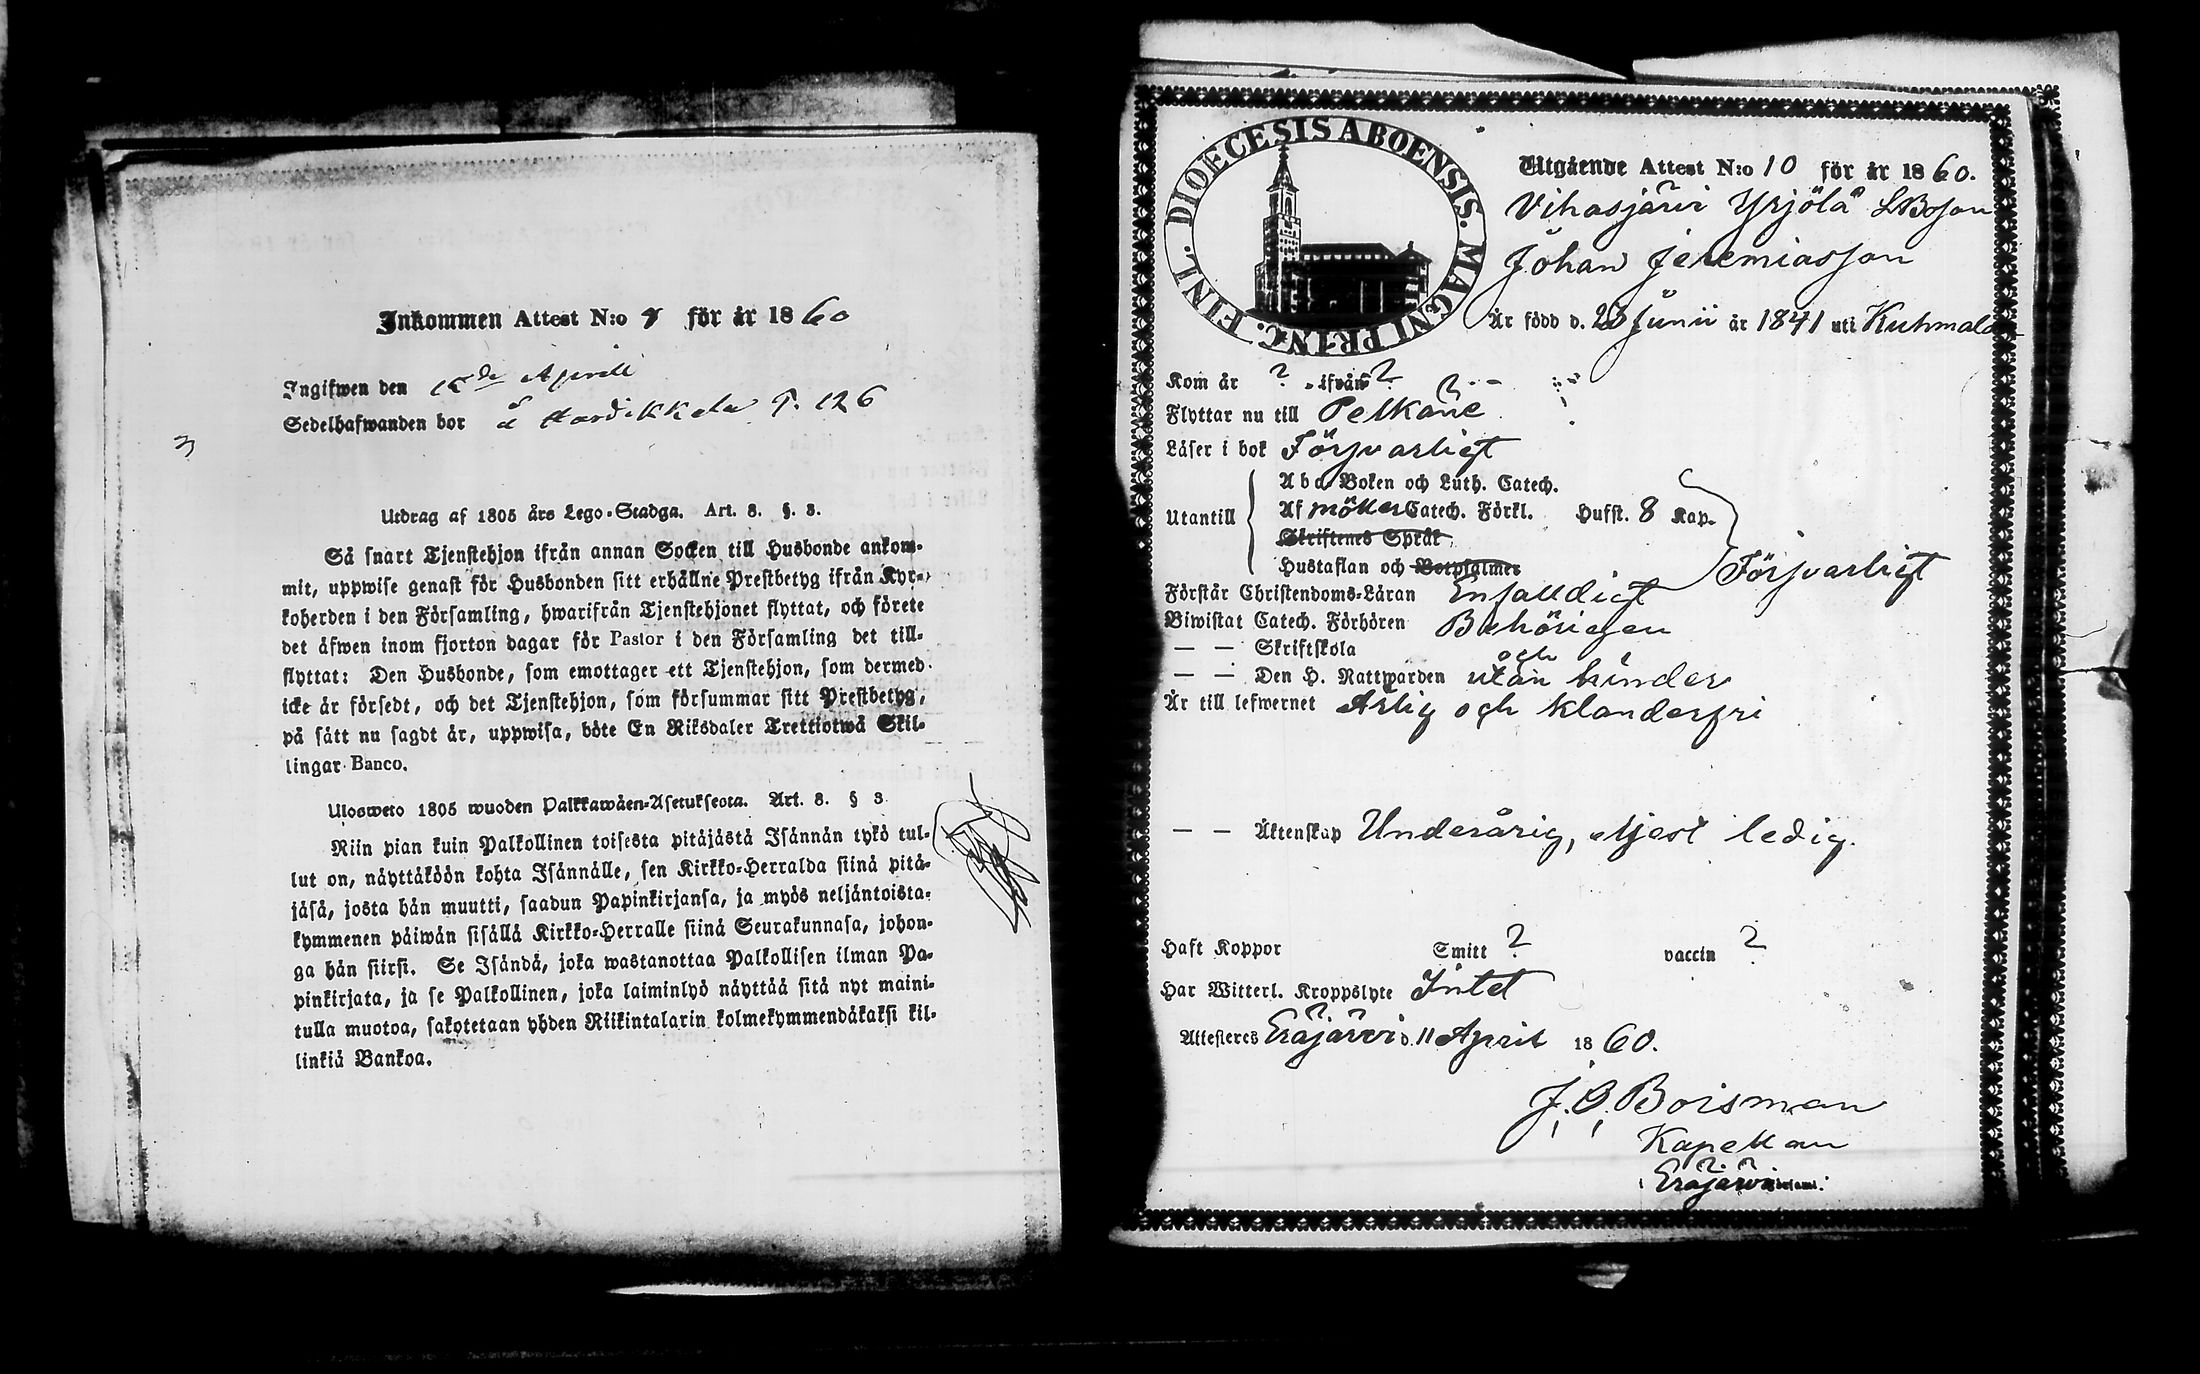 Inkommen Attest N:o för år 1860
Ingifwen den Aprill
Sedelhafwanden bor å Hardikkala P. 126
3
Utdrag af 1805 års Lego-Stadga. Art. 8. §. 3.
Så snart Tjenstehjon ifrån annan Socken till Husbonde ankom-
mit, uppwise genast för Husbonden sitt erhållne Prestbetyg ifrån Kyr-
koherden i den Församling, hwarifrån Tjenstehjonet flyttat, och förete
det äfwen inom fjorton dagar för Pastor i den Församling det till-
flyttat: Den Husbonde, som emottager ett Tjenstehjon, som dermed
icke är försedt, och det Tjenstehjon, som försummar sitt Prestbetyg,
på sätt nu sagdt är, uppwisa, böte En Riksdaler Trettiotwå Skil-
lingar Banco.
Ulosweto 1805 wuoden Palkkawäen-Asetuksesta. Art. 8. § 3
Niin pian kuin Palkollinen toisesta pitäjästä Isännän tykö tul-
lut on, näyttäköön kohta Isännälle, sen Kirkko-Herralda siinä pitä-
jäsä, josta hän muutti, saadun Papinkirjansa, ja myös neljäntoista-
kymmenen päiwän sisällä Kirkko-Herralle siinä Seurakunnasa, johon-
ga hän siirsi. Se Isändä, joka wastanottaa Palkollisen ilman Pa-
pinkirjata, ja se Palkollinen, joka laiminlyö näyttää sitä nyt maini-
tulla muotoa, sakotetaan yhden Riikintalarin kolmekymmendäkaksi kil-
linkiä Bankoa.
FINL. DIOECESIS ABOENSIS. MAGNI PRINC.
Utgående Attest N:o 10 för år 1860.
Vihasjärvi Yrjölä LBoson
Johan Jeremiasson
Är född d. Junii år 1841 uti Kuhmala
Kom år ? ifrån ?
Flyttar nu till Pelkäne
Läser i bok Försvarligt
Utantill
Aba Boken och Luth. Catech.
Af möller Catech. Förkl. Hufst. 8 Kap.
Skriftenes Språk
Hustaflan och Botpsalmer
Försvarligt
Förstår Christendoms-Läran Enfalldigt
Biwistat Catech. Förhören Behörigen
— — Skriftskola och
— — Den H. Nattwarden utan hinder
Är till lefwernet Ärlig och klanderfri
— — Äktenskap Underårig, alltjest ledig.
Haft Koppor Smitt ? vaccin ?
Har Witterl. Kroppslyte Intet
Attesteres Eräjärvi d. 11 April 1860.
J. O. Boisman
Kapellan
i Eräjärvi Församl.